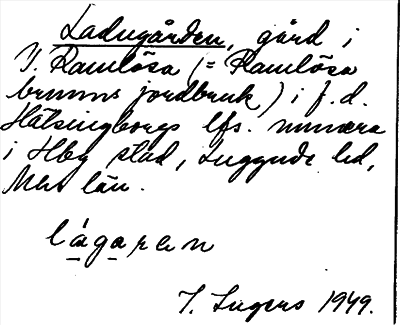 Ladugården, gård i
V. Ramlösa (= Ramlösa
brunns jordbruk) i f. d.
Hälsingborgs lfs. numera
i Hbg stad, Luggude hd,
Mlm län.
lágaren
I. Ingers 1949.